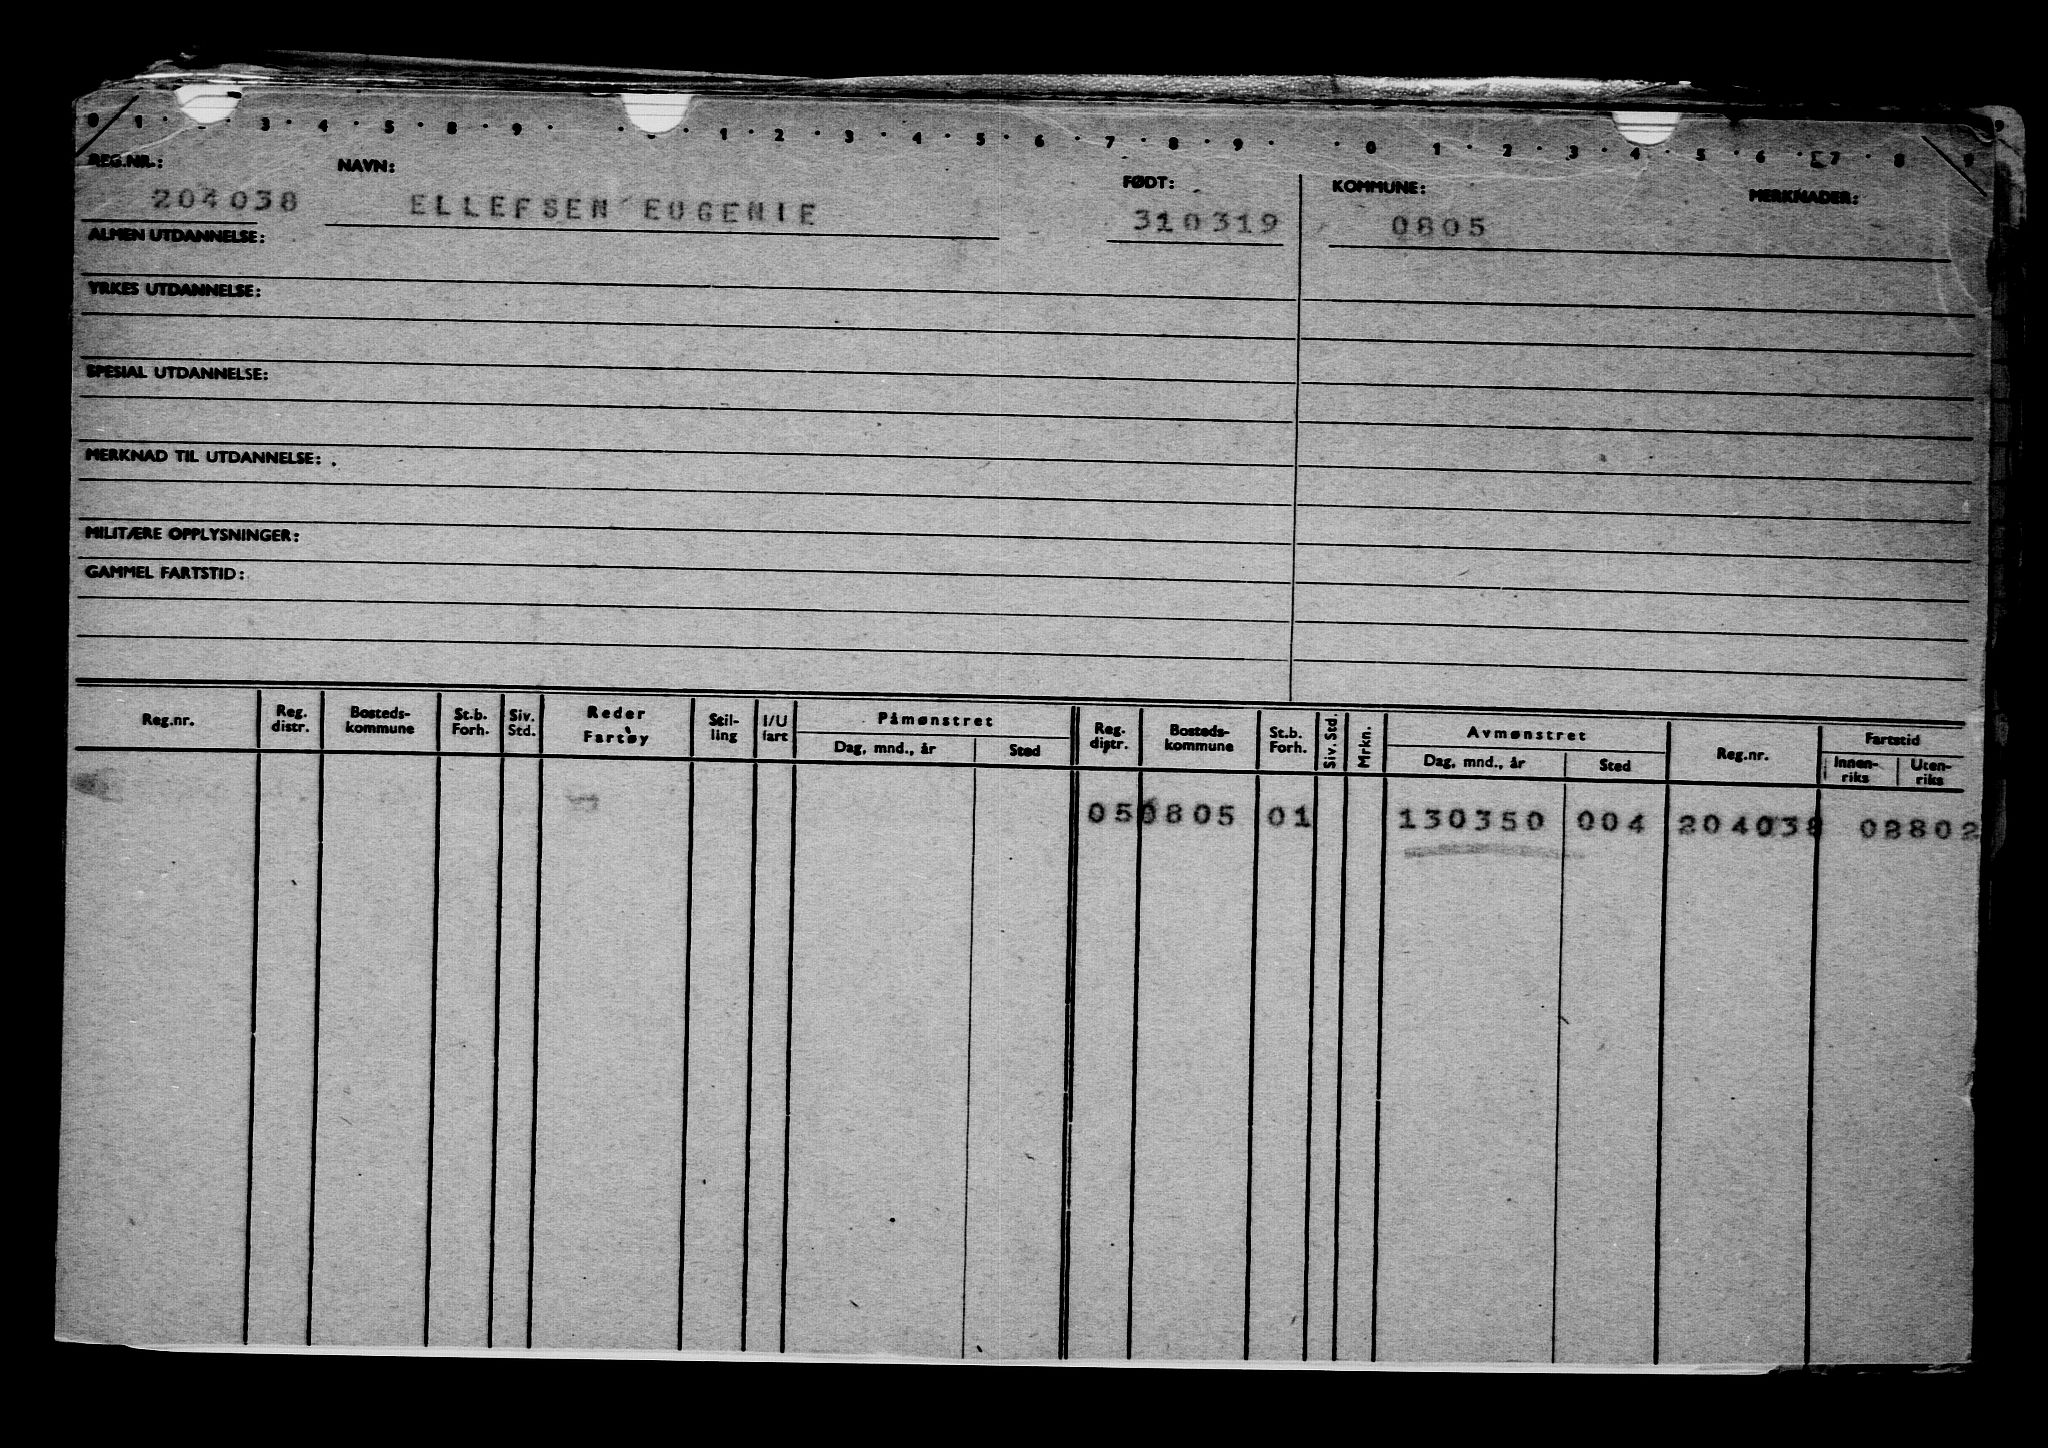 0 1 · · · 3 · 4 · 5 · 8 · 9 · · · · 1 · 2 · 3 · 4 · 5 · 6 · 7 · 8 · 9 · · 0 1 · 2 · 3 · 4 · 5 · 6 · 7 · 8 9
REG.NR.: NAVN: FØDT: KOMMUNE: MERKNADER:
204038 ELLEFSEN EUGENIE 310319 0805
ALMEN UTDANNELSE:
YRKES UTDANNELSE:
SPESIAL UTDANNELSE:
MERKNAD TIL UTDANNELSE:
MILITÆRE OPPLYSNINGER:
GAMMEL FARTSTID:
Reg.nr. Reg. distr. Bosteds-kommune St.b. Forh. Siv. Std. Reder Fartøy Stil-ling I/U fart Påmønstret Dag, mnd., år Sted Reg. distr. Bosteds-kommune St.b. Forh. Siv. Std. Mrkn. Avmønstret Dag, mnd., år Sted Reg.nr. Fartstid Innen-riks Uten-riks
05 0805 01 130350 004 204038